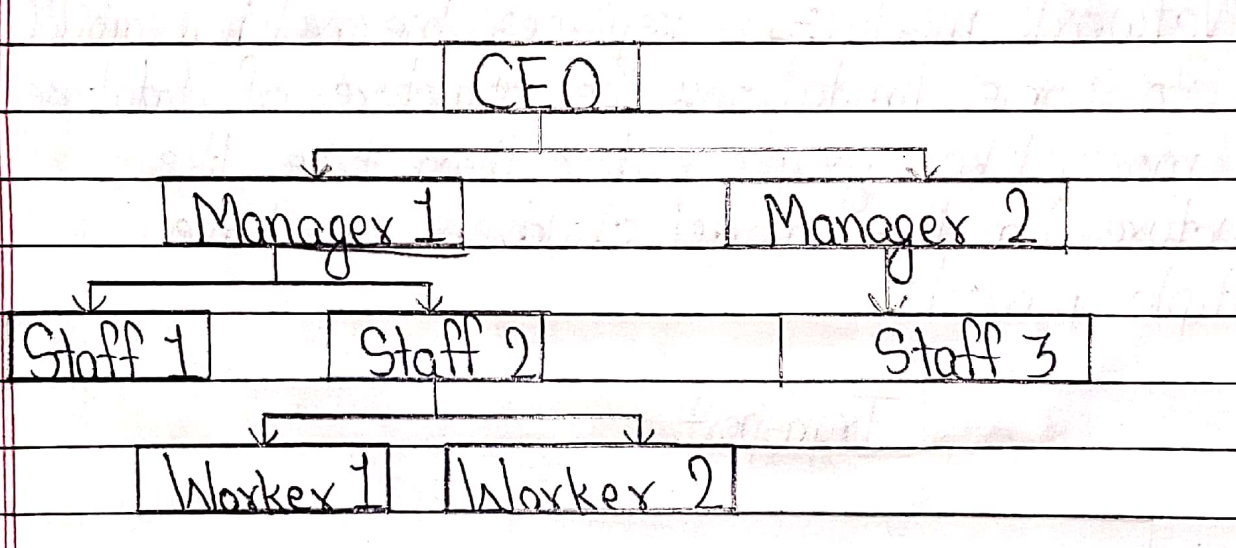 CEO
Manager 1 Manager 2
Staff 1 Staff 2 Staff 3
Worker 1 Worker 2